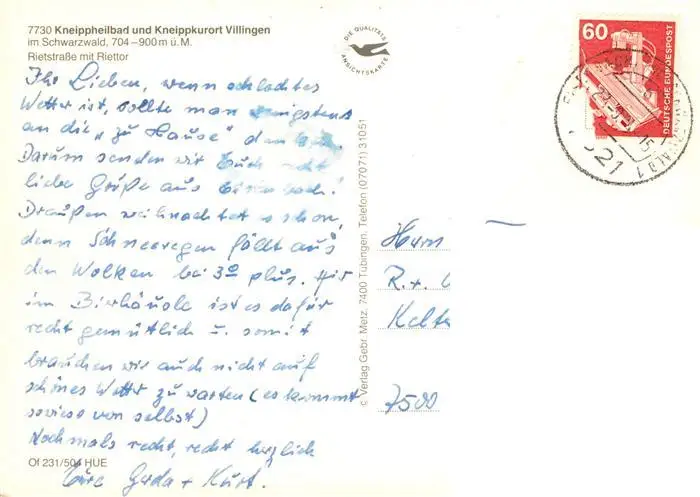 7730 Kneippheilbad und Kneippkurort Villingen
im Schwarzwald, 704–900 m ü. M.
Rietstraße mit Riettor
DIE QUALITÄTS
ANSICHTSKARTE
60
DEUTSCHE BUNDESPOST
7821
Ihr Lieben, wenn schlechtes
Wetter ist, sollte man wenigstens
an die „zu Hause"
Darum senden wir Euch recht
liebe Grüße aus
Draußen weihnachtet es schon,
denn Schneeregen fällt aus
den Wolken bei 3° plus. Hier
im ist es dafür
recht gemütlich u. somit
brauchen wir auch nicht auf
schönes Wetter zu warten (es kommt
sowieso von selbst)
Nochmals recht, recht herzlich
Eure Gerda + Kurt.
Herrn
R. +
Kelte
7500
© Verlag Gebr. Metz, 7400 Tübingen, Telefon (07071) 31051
Of 231/504 HUE